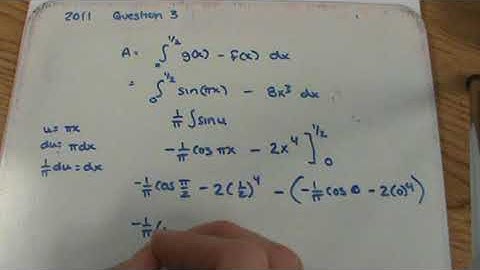 2011 Question 3
A = ∫₀^{1/2} g(x) - f(x) dx
= ∫₀^{1/2} sin(πx) - 8x³ dx
1/π ∫ sin u
u = πx
du = πdx
1/π du = dx
-1/π cos πx - 2x⁴ ]₀^{1/2}
-1/π cos π/2 - 2(1/2)⁴ - (-1/π cos 0 - 2(0)⁴)
-1/π (